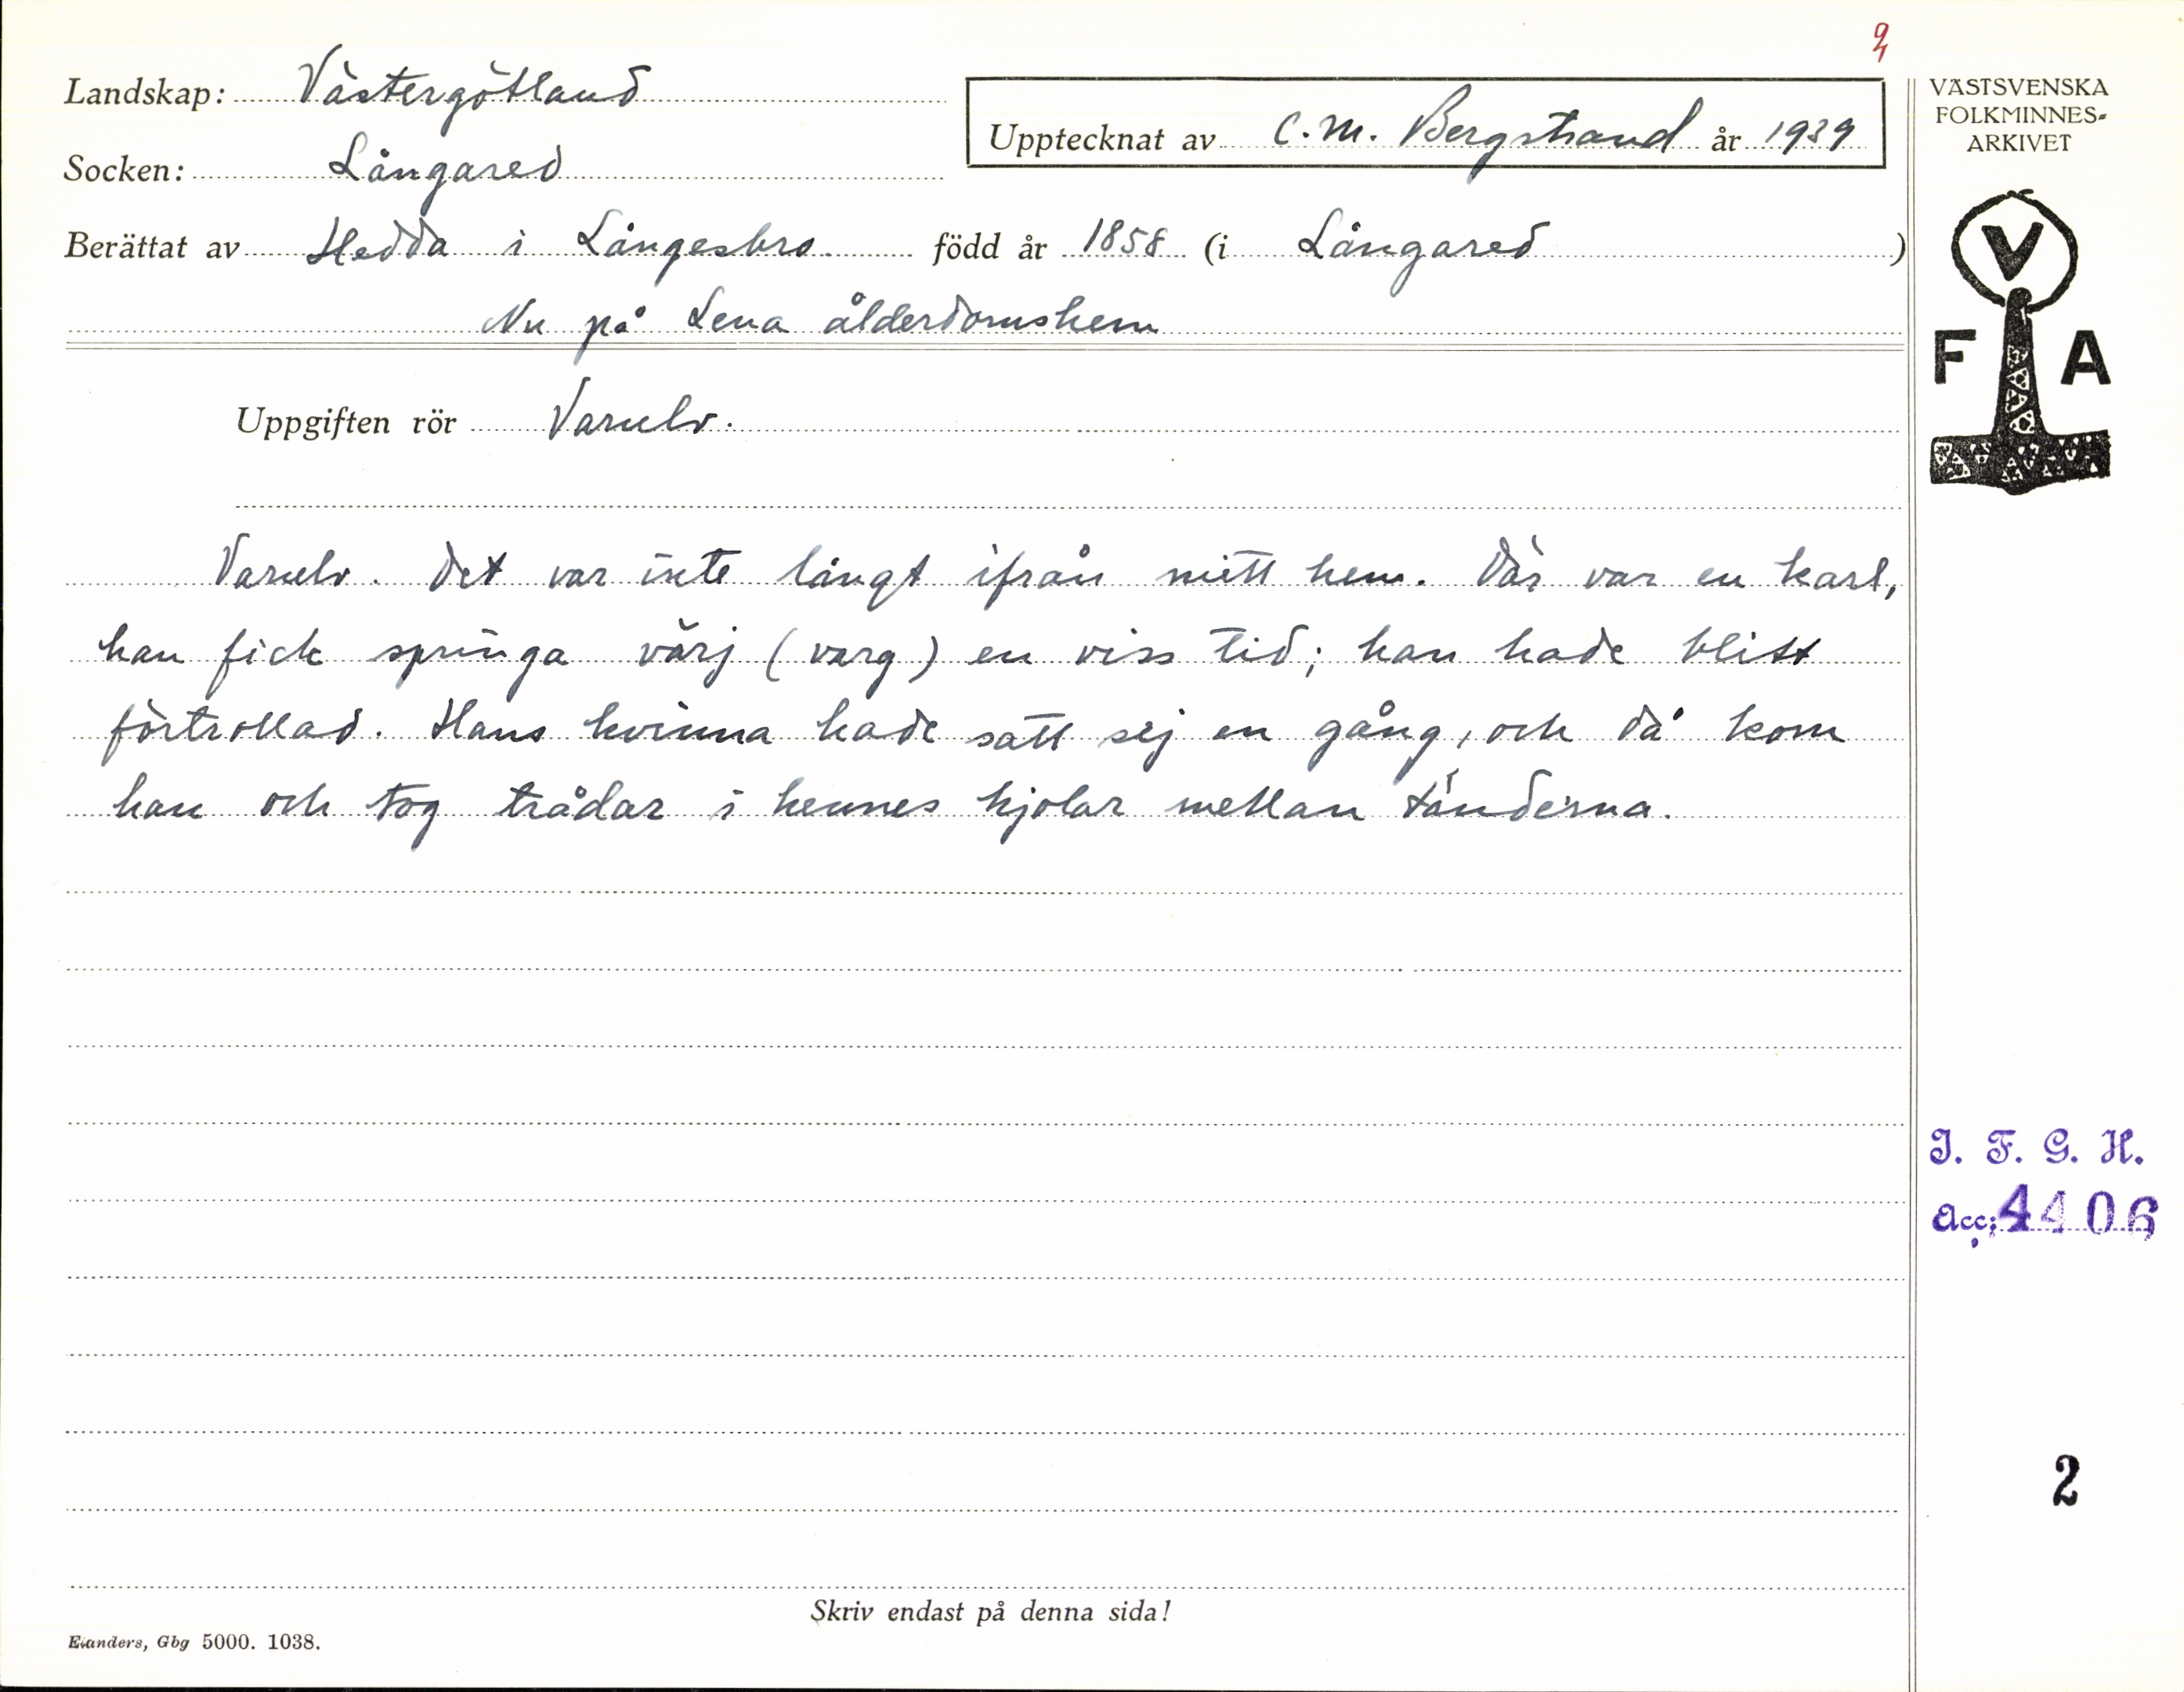 2
Landskap: Västergötland
Socken: Långared
Upptecknat av C. M. Bergstrand år 1939
Berättat av Hedda i Långesbro född år 1858 (i Långared)
Nu på Lena ålderdomshem
Uppgiften rör Varulv.
Varulv. Det var inte långt ifrån mitt hem. Där var en karl,
han fick springa värj (varg) en viss tid; han hade blitt
förtrollad. Hans kvinna hade satt sej en gång, och då kom
han och tog trådar i hennes kjolar mellan tänderna.
Skriv endast på denna sida!
Elanders, Gbg 5000. 1038.
VÄSTSVENSKA
FOLKMINNES-
ARKIVET
V
F A
I. F. G. H.
Acc: 4406
2